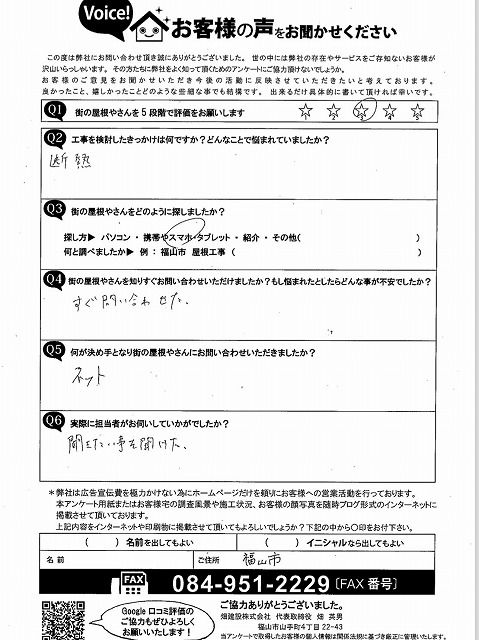 Voice! お客様の声をお聞かせください
この度は弊社にお問い合わせ頂き誠にありがとうございました。 世の中には弊社の存在やサービスをご存知ないお客様が
沢山いらっしゃいます。 その方たちに弊社をよく知って頂くためのアンケートにご協力頂けないでしょうか。
お客様のご意見をお聞かせいただき今後の活動に反映させていただきたいと考えております。
良かったこと、嬉しかったことどのような些細な事でも結構です。 出来るだけ具体的に書いて頂ければ幸いです。
Q1 街の屋根やさんを5段階で評価をお願いします ☆1 ☆2 ☆3 ☆4 ☆5
Q2 工事を検討したきっかけは何ですか?どんなことで悩まれていましたか?
断熱
Q3 街の屋根やさんをどのように探しましたか?
探し方▶ パソコン・携帯やスマホ・タブレット・紹介・その他( )
何と調べましたか▶ 例:福山市 屋根工事 ( )
Q4 街の屋根やさんを知りすぐお問い合わせいただけましたか?もし悩まれたとしたらどんな事が不安でしたか?
すぐ問い合わせた、
Q5 何が決め手となり街の屋根やさんにお問い合わせいただきましたか?
ネット
Q6 実際に担当者がお伺いしていかがでしたか?
聞きたい事を聞けた、
*弊社は広告宣伝費を極力かけない為にホームページだけを頼りにお客様への営業活動を行っております。
本アンケート用紙またはお客様宅の調査風景や施工状況、お客様の顔写真を随時ブログ形式のインターネットに
掲載させて頂いております。
上記内容をインターネットや印刷物に掲載させて頂いてもよろしいでしょうか?下記の中から〇印をお付け下さい。
( )名前を出してもよい ( )イニシャルなら出してもよい
名前 ご住所 福山市
FAX 084-951-2229 [FAX 番号]
Google 口コミ評価の
ご協力もぜひよろしく
お願いいたします!
ご協力ありがとうございました。
畑建設株式会社 代表取締役 畑 英男
福山市山手町4丁目22-43
当アンケートで取得したお客様の個人情報は関係法規に基づき厳正に管理いたします。